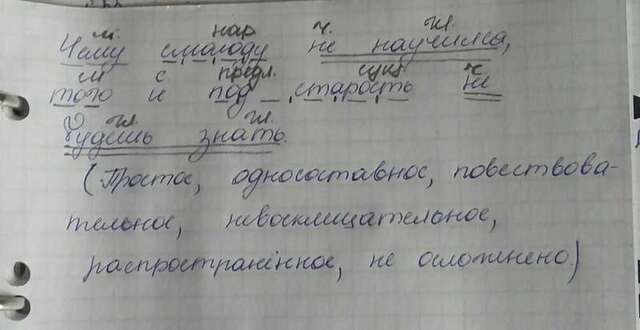 м. нар. ч. гл.
Чему смолоду не научился,
м с предл. сущ. ч
того и под старость не
гл. гл.
будешь знать.
(Простое, односоставное, повествова-
тельное, невосклицательное,
распространённое, не осложнено.)